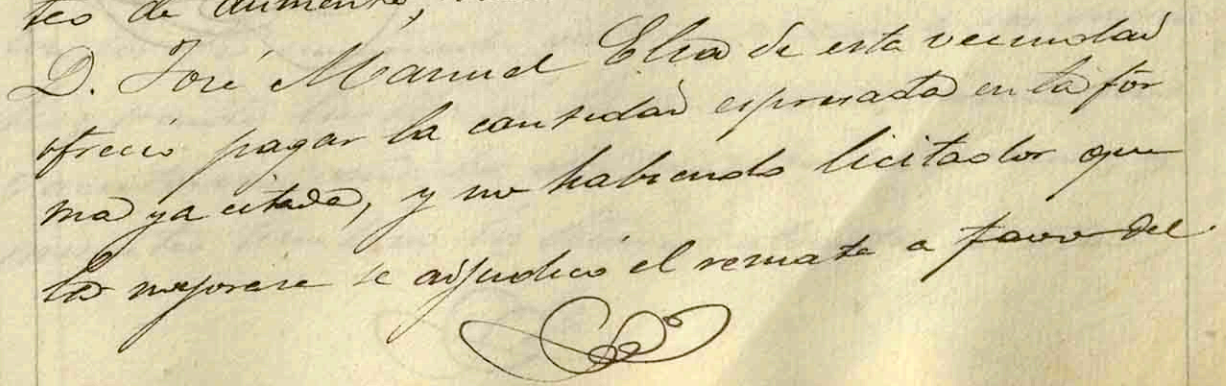 teo de aumento,
D. José Manuel Elra de esta vecindad
ofreció pagar la cantidad espresada en la for
ma ya citada, y no habiendo licitador que
la mejorase se adjudicó el remate a favor del